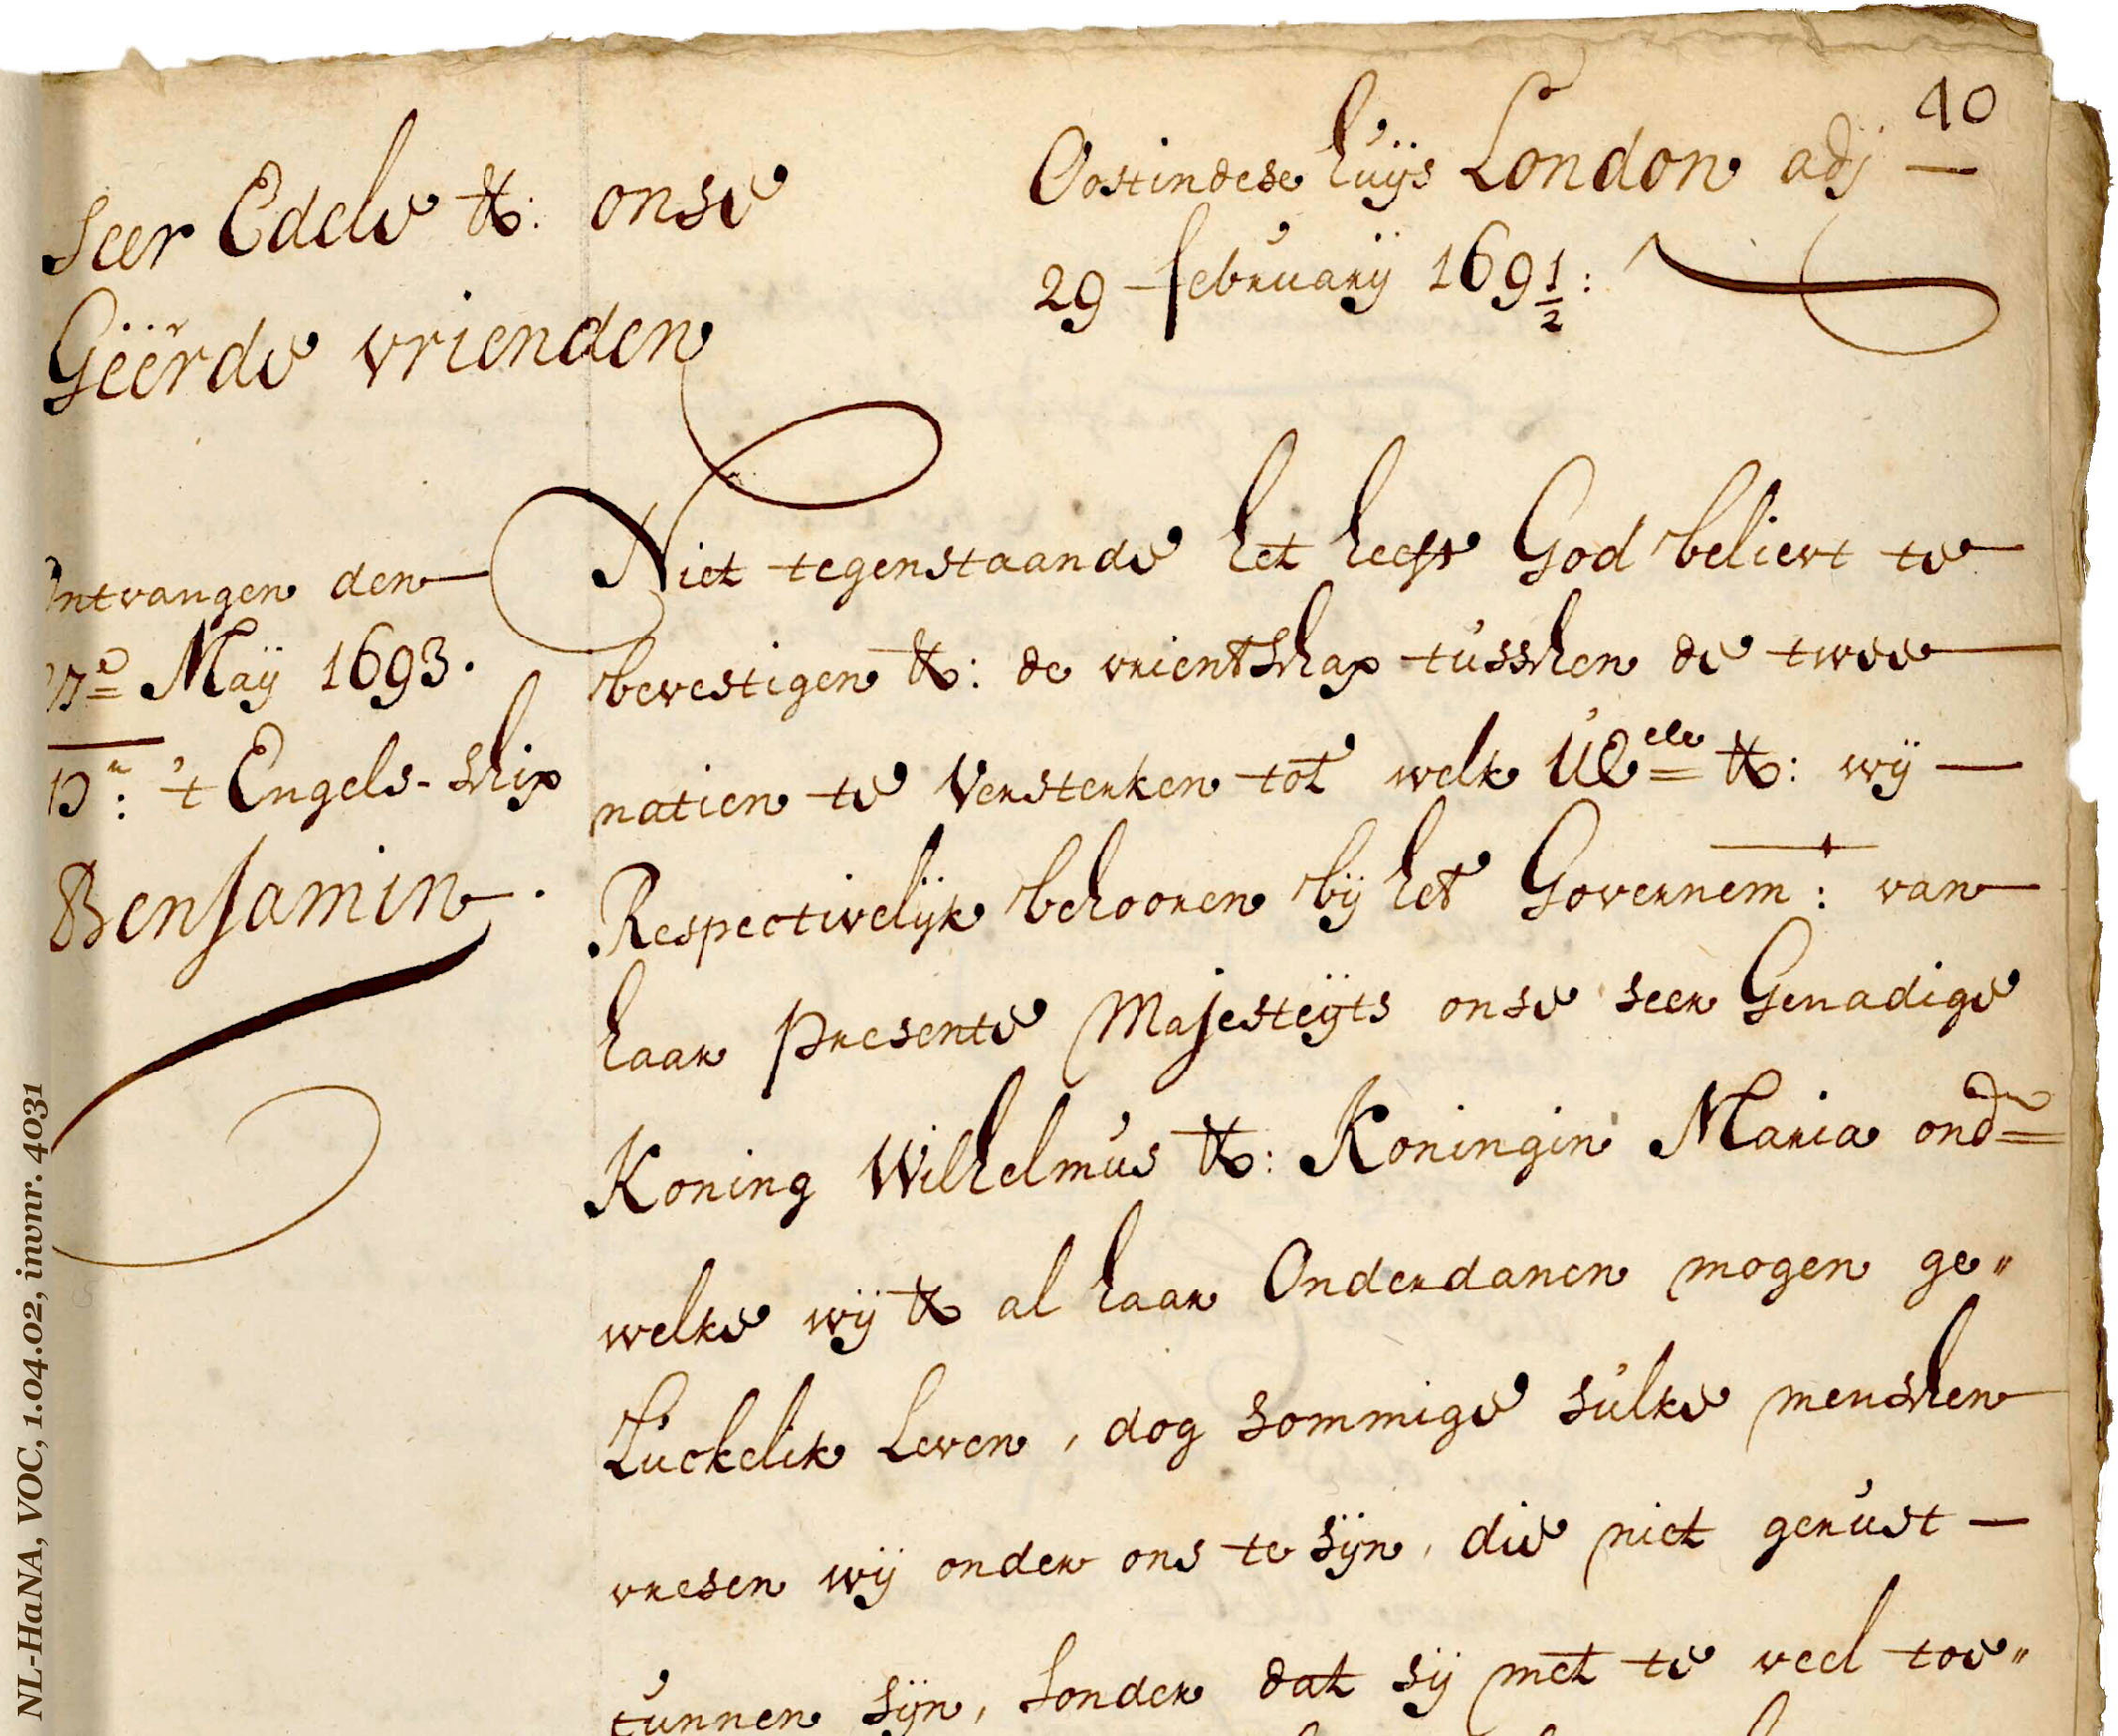 40
Oostindese huijs London adj —
29 februarij 169½:
Seer Edele &: onse
Geëerde vrienden
Ontvangen den
Maij 1693.
p:r 't Engels-schip
Benjamin.
Niet tegenstaande het heeft God believt te
bevestigen &: de vrientschap tusschen de twee
natien te versterken tot welk UEele &: wij —
Respectivelijk behooren bij het Governem:t van
haar presente Majesteijts onse seer Genadige
Koning Wilhelmus &: Koningin Maria ond=r
welke wij & al haar Onderdanen mogen ge"
Luckelik Leven, dog sommige sulke menschen
vresen wij onder ons te sijn, die niet gerust —
cunnen sijn, sonder dat sij met te veel toe"
NL-HaNA, VOC, 1.04.02, invnr. 4031